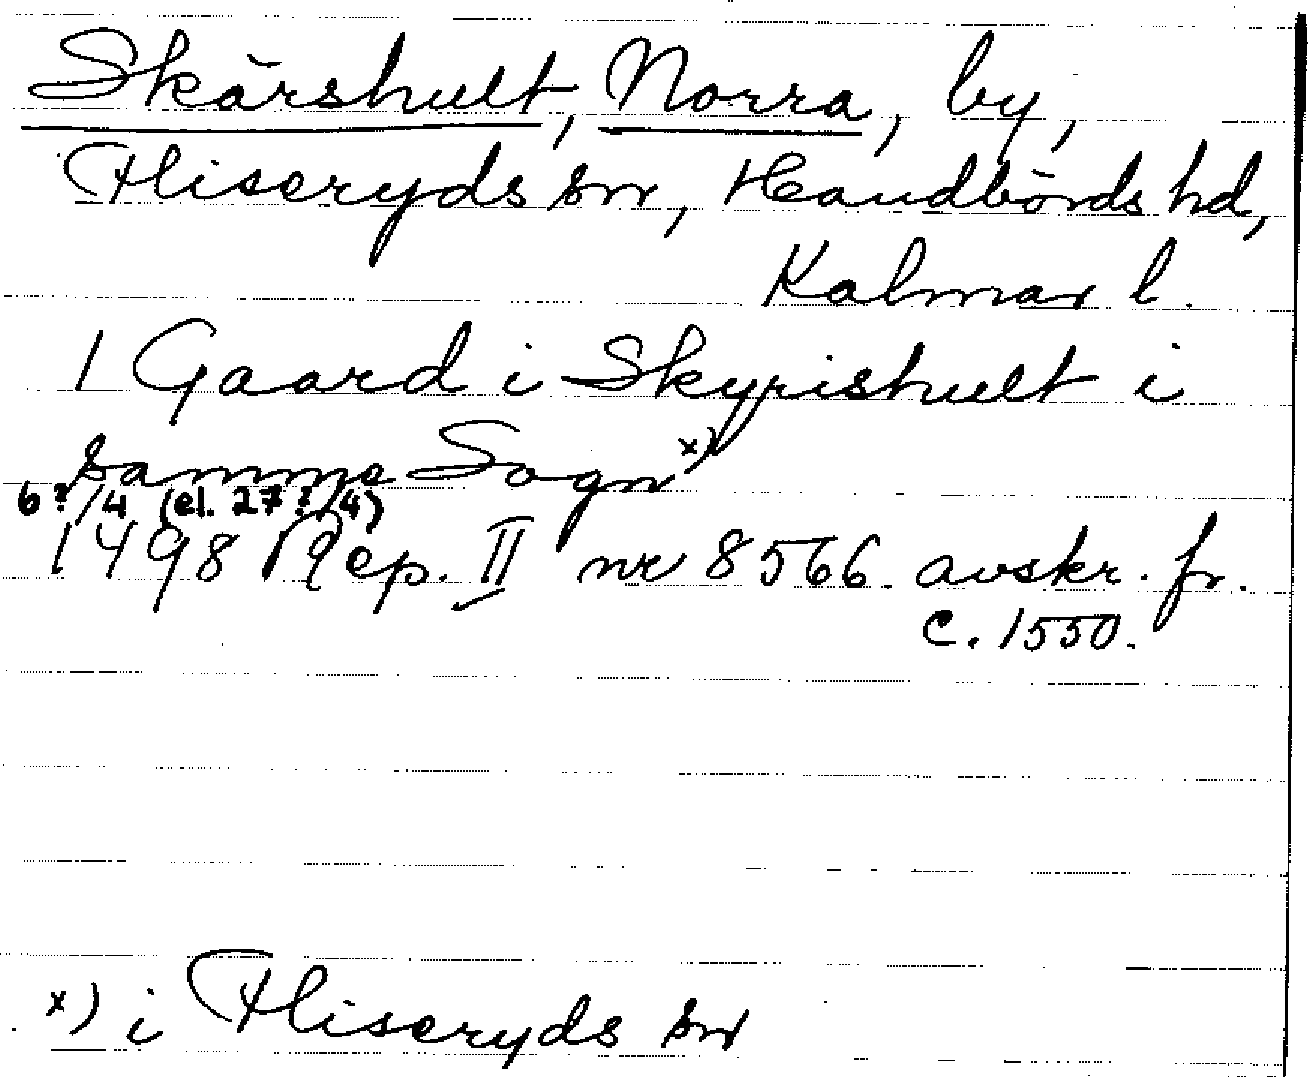 Skärshult, Norra, by,
Fliseryds sn, Handbörds hd,
Kalmar l.
1 Gaard i Skyrishult i
samme Sogn x)
6?/4 (el. 27?/4)
1498 Rep. II nr 8566 avskr. fr.
c. 1550.
x) i Fliseryds sn